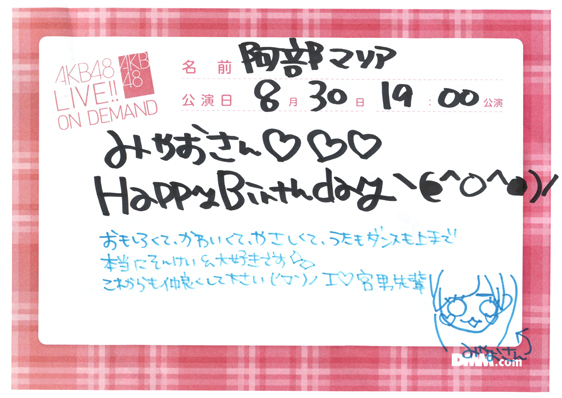 AKB48
LIVE!!
ON DEMAND
AKB
48
名前 阿部マリア
公演日 8月30日 19:00公演
みゃおさん♡♡♡
Happy Birthday ヽ(●^O^●)ノ
おもしろくて、かわいくて、やさしくて、うたもダンスも上手で
本当にそんけい&大好きです♡
これからも仲良くして下さい(^▽^)/ I♡宮男先輩
みゃおさん
DMM.com